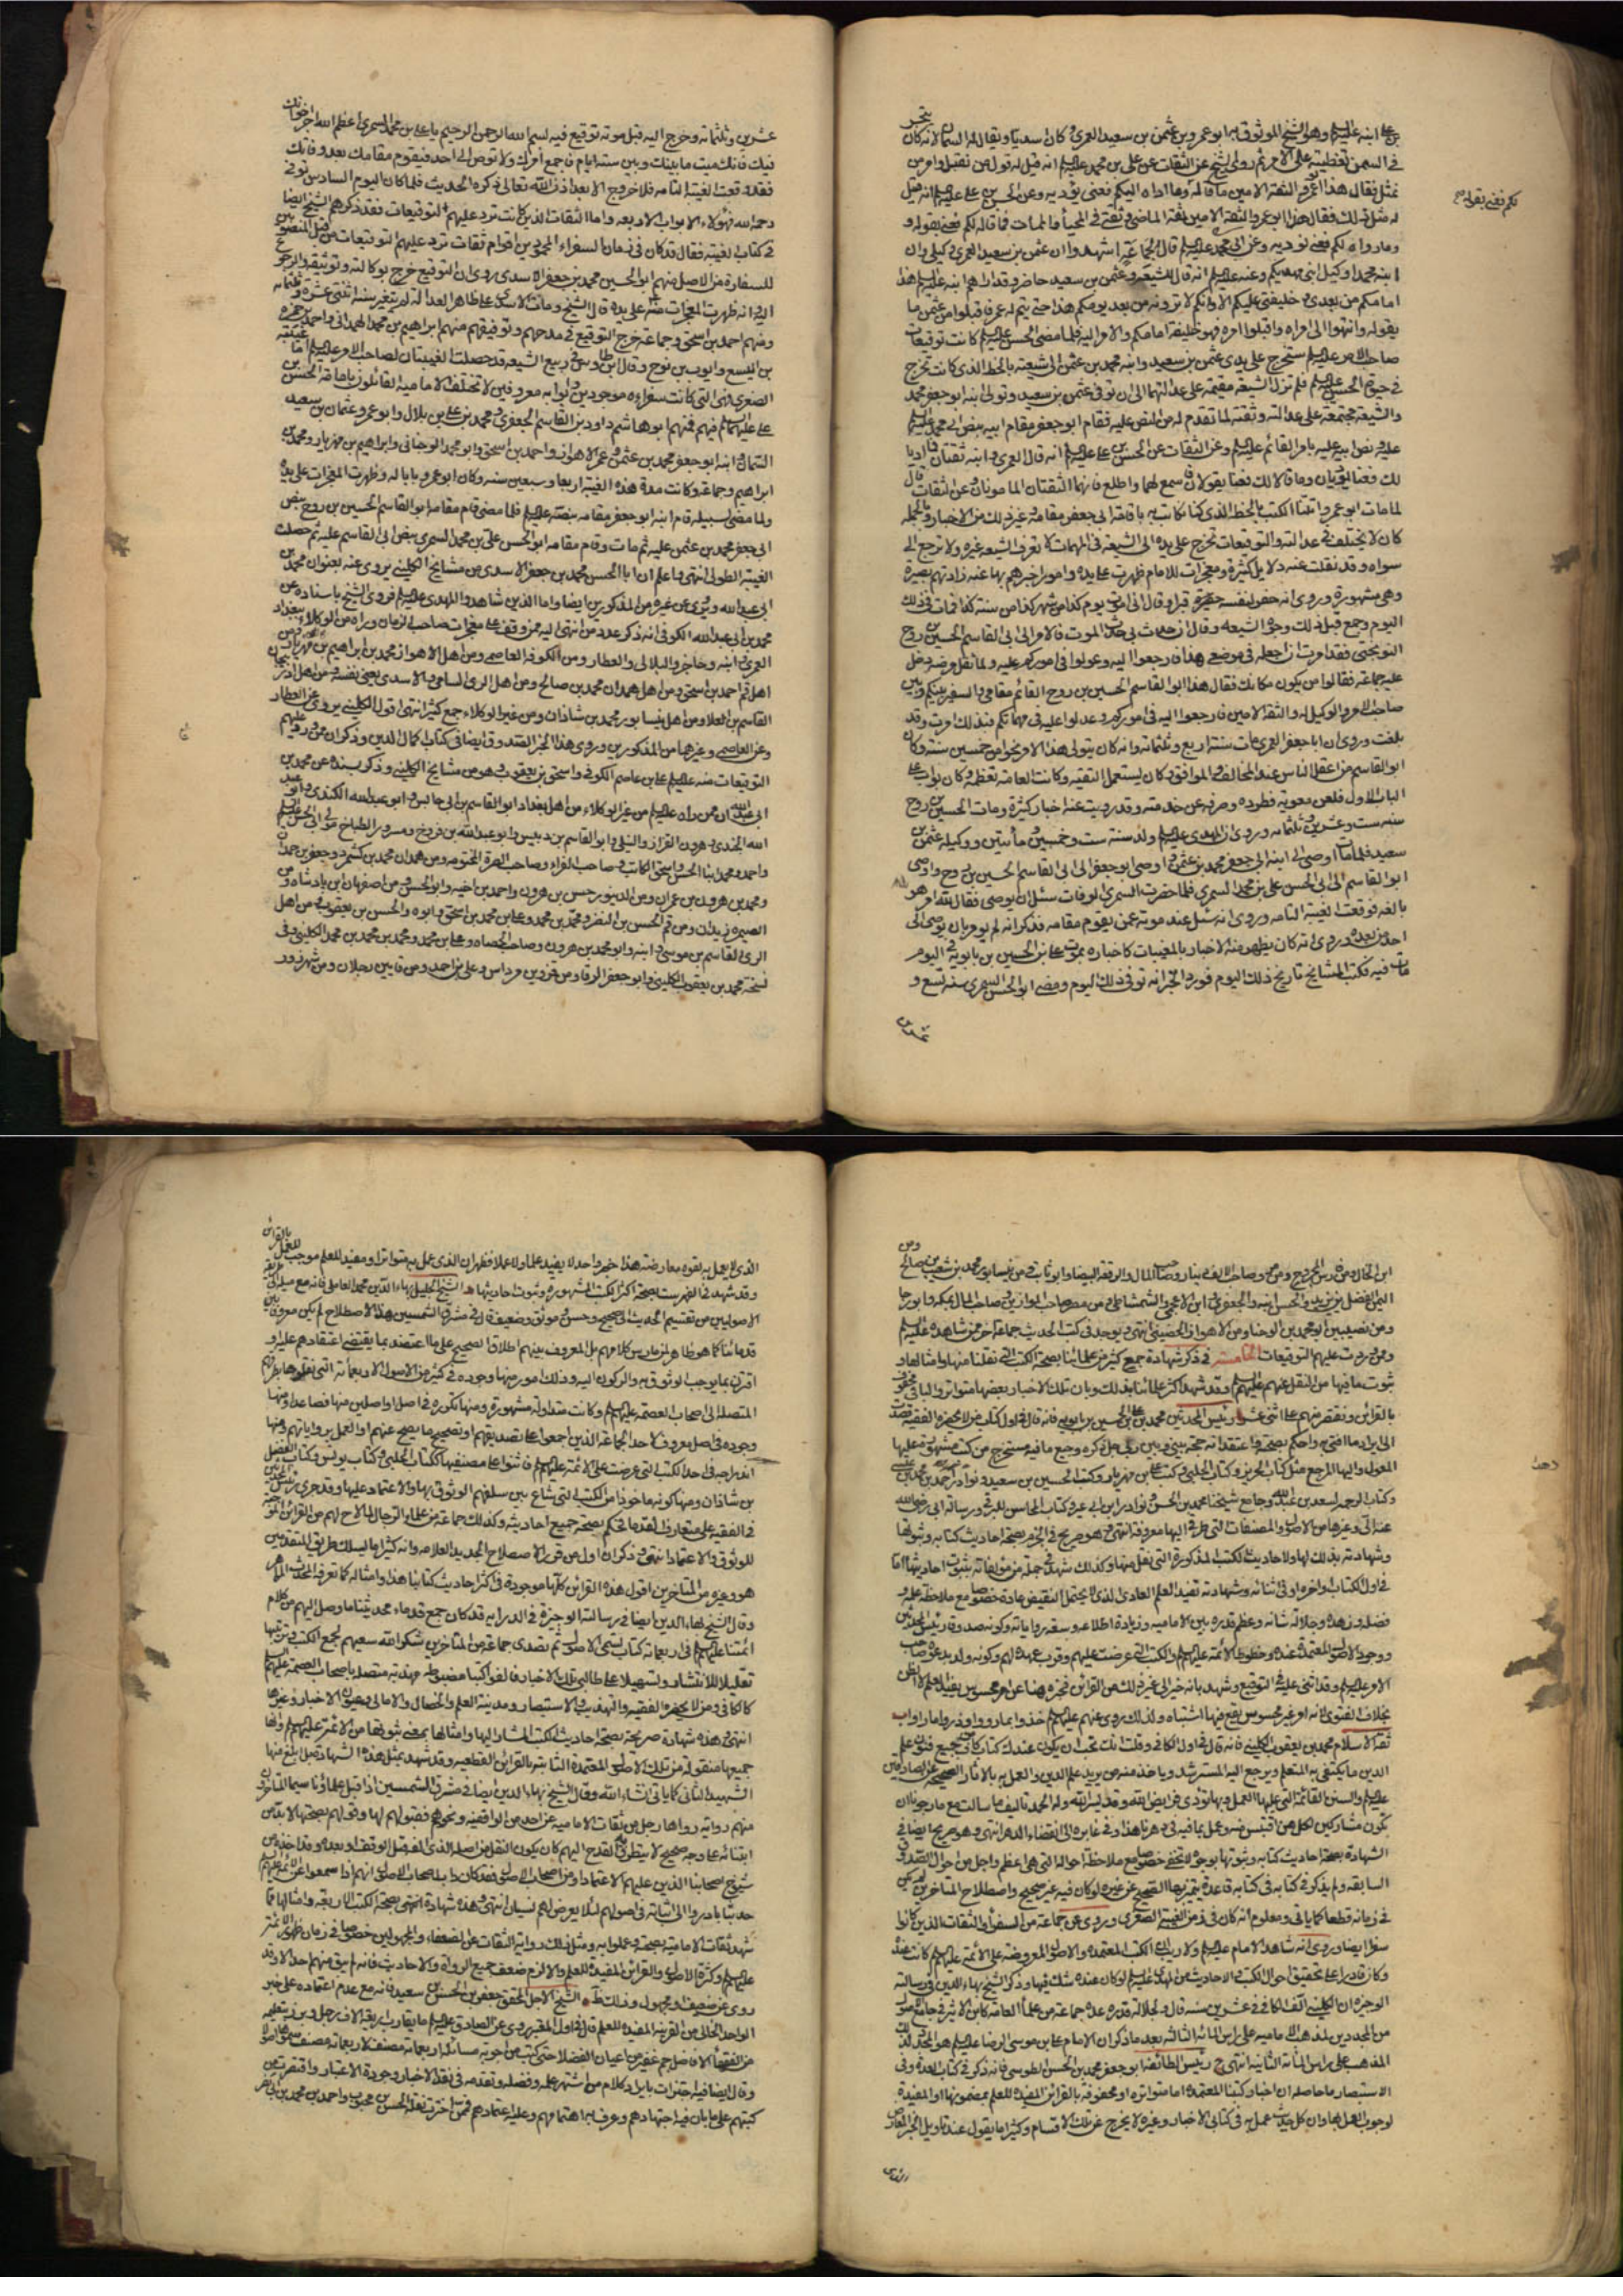 بن علي ابنه عليهم السلام وهو الشيخ الموثوق به ابو عمرو بن عثمن بن سعيد العمري وكان اسديا ويقال له السمان لانه كان يتجر
في السمن تغطية على الامر ثم روى الشيخ عن الثقات عن علي بن محمد عليه السلام انه قيل له قول من نقبل وامر من
نمتثل فقال هذا ابو عمرو الثقة الامين ما قاله لكم فعني يقوله وما اداه اليكم فعني يؤديه وعن الحسن بن علي عليه السلام انه قيل
له مثل ذلك فقال هذا ابو عمرو الثقة الامين ثقة الماضي وثقتي في المحيا والممات فما قاله لكم فعني يقوله و
ما رواه لكم فعني يؤديه وعن ابي محمد عليه السلام قال لجماعة اشهدوا ان عثمن بن سعيد العمري وكيلي وان
ابنه محمدا وكيل ابني مهديكم وعنه عليه السلام انه قال للشيعة وعثمن بن سعيد حاضر وقد اراهم ابنه عليه السلام هذا
امامكم من بعدي وخليفتي عليكم الا وانكم لا ترونه من بعد يومكم هذا حتى يتم له عمر فاقبلوا من عثمن ما
يقوله وانتهوا الى امره واقبلوا امره فهو خليفة امامكم والامر اليه فلما مضى الحسن عليه السلام كانت توقيعات
صاحب الامر عليه السلام تخرج على يدي عثمن بن سعيد وابنه محمد بن عثمن الى شيعته بالخط الذي كانت تخرج
في حيوة الحسن عليه السلام فلم تزل الشيعة مقيمة على عدالتهما الى ان توفي عثمن بن سعيد وتولى ابنه ابو جعفر محمد
والشيعة مجتمعة على عدالته وثقته لما تقدم له من النص عليه فقام ابو جعفر مقام ابيه بنص ابي محمد عليه السلام
عليه ونص ابيه عليه بامر القائم عليه السلام وعن الثقات عن الحسن بن علي عليه السلام انه قال العمري وابنه ثقتان فما اديا
لك فعني يؤديان وما قالا لك فعني يقولان فاسمع لهما واطع فانهما الثقتان المامونان وعن الثقات قال
لما مات ابو عمرو اتتنا الكتب بالخط الذي كنا نكاتب به باقامة ابي جعفر مقامه وغير ذلك من الاخبار وبالجملة
كان لا يختلف في عدالته والتوقيعات تخرج على يده الى الشيعة في المهمات لا تعرف الشيعة غيره ولا ترجع الى
سواه وقد نقلت عنه دلايل كثيرة ومعجزات للامام ظهرت على يده وامور اخبرهم بها عنه زادتهم بصيرة
وهي مشهورة وروي انه حفر لنفسه قبرا وقال اني اموت يوم كذا من شهر كذا من سنة كذا فمات في ذلك
اليوم وجمع قبل ذلك وجوه الشيعة وقال ان حدث بي حدث الموت فالامر الى ابي القاسم الحسين بن روح
النوبختي فقد امرت ان اجعله في موضعي هذا فارجعوا اليه وعولوا في اموركم عليه ولما ثقل مرضه دخل
عليه جماعة فقالوا من يكون مكانك فقال هذا ابو القاسم الحسين بن روح القائم مقامي والسفير بينكم وبين
صاحب الامر والوكيل له والثقة الامين فارجعوا اليه في اموركم وعولوا عليه في مهماتكم فبذلك امرت وقد
بلغت وروي ان ابا جعفر العمري مات سنة اربع وثلثمائة وانه كان يتولى هذا الامر نحوا من خمسين سنة وكان
ابو القاسم من اعقل الناس عند المخالف والموافق وكان يستعمل التقية وكانت العامة تعظمه وكان بواب على
الباب الاول فلعن معوية فطرده وصرفه عن خدمته وقد رويت عنه اخبار كثيرة ومات الحسين بن روح
سنة ست وعشرين وثلثمائة وروي ان المهدي عليه السلام ولد سنة ست وخمسين ومأتين ووكيله عثمن بن
سعيد فلما مات اوصى الى ابنه ابي جعفر محمد بن عثمن واوصى ابو جعفر الى ابي القاسم الحسين بن روح واوصى
ابو القاسم الى ابي الحسن علي بن محمد السمري فلما حضرت السمري الوفاة سئل ان يوصي فقال لله امر هو
بالغه فوقعت الغيبة التامة وروي انه سئل عند موته عمن يقوم مقامه فذكر انه لم يؤمر بان يوصي الى
احد من بعده وروي انه كان يظهر منه الاخبار بالمغيبات كاخباره بموت علي بن الحسين بن بابويه في اليوم
مات فيه فكتب المشايخ تاريخ ذلك اليوم فورد الخبر انه توفي ذلك اليوم ومضى ابو الحسن السمري سنة تسع و
عشرين
لكم فعني يقوله
عشرين وثلثمائة وخرج اليه قبل موته توقيع فيه بسم الله الرحمن الرحيم يا علي بن محمد السمري اعظم الله اجر اخوانك
فيك فانك ميت ما بينك وبين ستة ايام فاجمع امرك ولا توص الى احد فيقوم مقامك بعد وفاتك
فقد وقعت الغيبة التامة فلا خروج الا بعد اذن الله تعالى ذكره الحديث فلما كان اليوم السادس توفي
رحمه الله فهؤلاء الابواب الاربعة واما الثقات الذين كانت ترد عليهم التوقيعات فقد ذكرهم الشيخ ايضا
في كتاب الغيبة فقال قد كان في زمان السفراء المحمودين اقوام ثقات ترد عليهم التوقيعات من قبل المنصوبين
للسفارة من الاصل منهم ابو الحسين محمد بن جعفر الاسدي روي ان التوقيع خرج بوكالته وتوثيقه والرجوع
اليه وانه ظهرت المعجزات منه على يده قال الشيخ ومات الاسدي على ظاهر العدالة لم يتغير سنة اثنتي عشرة وثلثمائة
ومنهم احمد بن اسحق وجماعة خرج التوقيع في مدحهم وتوثيقهم منهم ابراهيم بن محمد الهمداني واحمد بن حمزة
بن اليسع وايوب بن نوح وقال ابن طاوس في ربيع الشيعة قد حصلت الغيبتان لصاحب الامر عليه السلام اما غيبته
الصغرى فهي التي كانت سفراؤه موجودين وابوابه معروفين لا تختلف الامامية القائلون بامامة الحسن بن
علي عليه السلام فيهم فمنهم ابو هاشم داود بن القاسم الجعفري ومحمد بن علي بن بلال وابو عمرو عثمان بن سعيد
السمان وابنه ابو جعفر محمد بن عثمن وعمر الاهوازي واحمد بن اسحق وابو محمد الوجنائي وابراهيم بن مهزيار ومحمد بن
ابراهيم وجماعة وكانت مدة هذه الغيبة اربعا وسبعين سنة وكان ابو عمرو بابا له وظهرت المعجزات على يده
ولما مضى لسبيله قام ابنه ابو جعفر مقامه بنصه عليه فلما مضى قام مقامه ابو القاسم الحسين بن روح بنص
ابي جعفر محمد بن عثمن عليه ثم مات وقام مقامه ابو الحسن علي بن محمد السمري بنص ابي القاسم عليه ثم حصلت
الغيبة الطولى انتهى واعلم ان ابا الحسن محمد بن جعفر الاسدي من مشايخ الكليني يروي عنه بعنوان محمد بن
ابي عبد الله ويروي عن غيره من المذكورين ايضا واما الذين شاهدوا المهدي عليه السلام فروى الشيخ باسناده عن
محمد بن ابي عبد الله الكوفي انه ذكر عدد من انتهى اليه ممن وقف على معجزات صاحب الزمان وراه من الوكلاء ببغداد
العمري وابنه وحاجز والبلالي والعطار ومن الكوفة العاصمي ومن اهل الاهواز محمد بن ابراهيم بن مهزيار ومن
اهل قم احمد بن اسحق ومن اهل همدان محمد بن صالح ومن اهل الري السامي والاسدي يعني نفسه ومن اهل اذربيجان
القاسم بن العلا ومن اهل نيسابور محمد بن شاذان ومن غير الوكلاء جمع كثير انتهى اقول الكليني يروي عن العطار
وعن العاصمي وغيرهما من المذكورين وروى هذا الخبر الصدوق ايضا في كتاب اكمال الدين وذكر ان ممن ورد عليهم
التوقيعات منه عليه السلام علي بن عاصم الكوفي واسحق بن يعقوب وهو من مشايخ الكليني وذكر بسنده عن محمد بن
ابي عبد الله ان ممن راه عليه السلام من غير الوكلاء من اهل بغداد ابو القاسم بن ابي حابس وابو عبد الله الكندي وابو عبد
الله الجنيدي وهرون القزاز والنيلي وابو القاسم بن دبيس وابو عبد الله بن فروخ ومسرور الطباخ مولى ابي الحسن عليه السلام
واحمد ومحمد ابنا الحسن واسحق الكاتب وصاحب الفراء وصاحب الصرة المختومة ومن همدان محمد بن كشمرد وجعفر بن حمدان
ومحمد بن هرون بن عمران ومن الدينور حسن بن هرون واحمد بن اخيه وابو الحسن ومن اصفهان ابن بادشاله ومن
الصيمرة زيدان ومن قم الحسن بن النضر ومحمد بن محمد وعلي بن محمد بن اسحق وابوه والحسن بن يعقوب ومن اهل
الري القاسم بن موسى وابنه وابو محمد بن هرون وصاحب الحصاة وعلي بن محمد ومحمد بن محمد الكليني وفي
نسخة محمد بن يعقوب الكليني وابو جعفر الرفاء ومن قزوين مرداس وعلي بن احمد ومن قابس رجلان ومن شهرزور
ابن الخال ومن فارس المحروج ومن مرو صاحب الالف دينار وصاحب المال والرقعة البيضاء وابو ثابت ومن نيسابور محمد بن شعيب بن صالح ومن
اليمن الفضل بن يزيد والحسن ابنه والجعفري وابن الاعجمي والشمشاطي ومن مصر صاحب المولودين وصاحب المال بمكة وابو رجا
ومن نصيبين ابو محمد بن الوجنا ومن الاهواز الحصيني انتهى ويوجد في كتب الحديث جماعة اخر ممن شاهده عليه السلام
وممن وردت عليهم التوقيعات الخامسة في ذكر شهادة جمع كثير من علمائنا بصحة الكتب التي نقلنا منها وامثالها و
ثبوت ما فيها من النقل عنهم عليهم السلام وقد شهد اكثر علمائنا بذلك وبان تلك الاخبار بعضها متواتر والباقي محفوف
بالقرائن ونقتصر منهم على اثني عشر رئيس المحدثين محمد بن علي بن الحسين بن بابويه فانه قال في اول كتاب من لا يحضره الفقيه قصدت
الى ايراد ما افتي به واحكم بصحته واعتقد انه حجة بيني وبين ربي جل ذكره وجميع ما فيه مستخرج من كتب مشهورة عليها
المعول واليها المرجع مثل كتاب حريز وكتاب الحلبي وكتب علي بن مهزيار وكتب الحسين بن سعيد ونوادر احمد بن محمد بن عيسى
وكتاب الرحمة لسعد بن عبد الله وجامع شيخنا محمد بن الحسن ونوادر ابن ابي عمير وكتاب المحاسن للبرقي ورسالة ابي رضي الله
عنه الي وغيرها من الاصول والمصنفات التي طرقي اليها معروفة انتهى وهو صريح في الجزم بصحة احاديث كتابه وثبوتها
وشهادته بذلك لها ولاحاديث الكتب المذكورة التي نقل منها وكذلك شهد في جملة من مؤلفاته بثبوت احاديثها اما
في اول الكتاب او اخره او في اثنائه وشهادته تفيد العلم العادي الذي لا يحتمل النقيض عادة خصوصا مع ملاحظة علمه و
فضله وزهده وجلالة شانه وعظم قدره بين الامامية وزيادة اطلاعه وسعة رواياته وكونه صدوقا رئيس المحدثين
ووجود الاصول المعتمدة عنده وخطوط الائمة عليهم السلام والكتب التي عرضت عليهم وقرب عهده لهم وكونه ولد بدعوة صاحب
الامر عليه السلام وقد اثنى عليه في التوقيع وشهد بانه خير الى غير ذلك من القرائن فخبره هنا عن امر محسوس يفيد العلم لا الظن
بخلاف الفتوى لانه امر غير محسوس يقع فيها اشتباه ولذلك روي عنهم عليهم السلام خذوا بما رووا وذروا ما راوا ب
ثقة الاسلام محمد بن يعقوب الكليني فانه قال في اول الكافي وقلت انك تحب ان يكون عندك كتاب كاف يجمع جميع فنون علم
الدين ما يكتفي به المتعلم ويرجع اليه المسترشد وياخذ منه من يريد علم الدين والعمل به بالاثار الصحيحة عن الصادقين
عليهم السلام والسنن القائمة التي عليها العمل وبها تؤدى فرايض الله وقد يسر الله وله الحمد تاليف ما سالت مع ما رجونا ان
نكون مشاركين لكل من اقتبس منه وعمل بما فيه في دهرنا هذا وفي غابره الى انقضاء الدهر انتهى وهو صريح ايضا في
الشهادة بصحة احاديث كتابه وثبوتها بوجوه لا تخفى خصوصا مع ملاحظة احواله التي هي اعظم واجل من احوال الصدوق
السابقة ولم يذكر في كتابه قاعدة يتميز بها الصحيح عن غيره لو كان فيه غير صحيح واصطلاح المتاخرين لم يكن
في زمانه قطعا كما ياتي ومعلوم انه كان في زمن الغيبة الصغرى وروى عن جماعة من السفراء والثقات الذين كانوا
سفراء ايضا وروي انه شاهد الامام عليه السلام ولا ريب ان الكتب المعتمدة والاصول المعروضة على الائمة عليهم السلام كانت عنده
وكان قادرا على تحقيق احوال الكتب والاحاديث من المهدي عليه السلام لو كان عنده شك فيها وذكر الشيخ بهاء الدين في رسالته
الوجيزة ان الكليني الف الكافي في عشرين سنة قال ولجلالة قدره عده جماعة من علماء العامة كابن الاثير في جامع الاصول
من المجددين لمذهب الامامية على راس المائة الثالثة بعد ما ذكر ان الامام علي بن موسى الرضا عليه السلام هو المجدد لذلك
المذهب على راس المائة الثانية انتهى ج رئيس الطائفة ابو جعفر محمد بن الحسن الطوسي فانه ذكر في كتاب العدة وفي
الاستبصار ما حاصله ان اخبار كتبنا المعتمدة اما متواترة او محفوفة بالقرائن المفيدة للعلم بمضمونها او المفيدة
لوجوب العمل بها وان كل حديث عمل به في كتابي الاخبار وغيره لا يخرج عن تلك الاقسام وكثيرا ما يقول عند تاويل الخبر المعارض
الذي لا يعمل به لقوة معارضه هذا خبر واحد لا يفيد علما ولا عملا فظهر ان الذي عمل به متواتر او مفيد للعلم موجب للعمل بالقرائن
وقد شهد في الفهرست بصحة اكثر الكتب المشهورة وثبوت احاديثها د الشيخ الجليل بهاء الدين محمد العاملي فانه مع ميله الى طريقة
الاصوليين من تقسيم الحديث الى صحيح وحسن وموثق وضعيف قال في مشرق الشمسين وهذا الاصطلاح لم يكن معروفا بين
قدمائنا كما هو ظاهر لمن مارس كلامهم بل المعروف بينهم اطلاق الصحيح على ما اعتضد بما يقتضي اعتمادهم عليه او
اقترن بما يوجب الوثوق به والركون اليه وذلك امور منها وجوده في كثير من الاصول الاربعمائة التي نقلوها بطرقهم
المتصلة الى اصحاب العصمة عليهم السلام وكانت متداولة مشهورة ومنها تكرره في اصل او اصلين منها فصاعدا ومنها
وجوده في اصل معروف لاحد الجماعة الذين اجمعوا على تصديقهم او تصحيح ما يصح عنهم او العمل برواياتهم ومنها
اندراجه في احد الكتب التي عرضت على الائمة عليهم السلام فاثنوا على مصنفيها ككتاب الحلبي وكتاب يونس وكتاب الفضل
بن شاذان ومنها كونه ماخوذا من الكتب التي شاع بين سلفهم الوثوق بها والاعتماد عليها وقد جرى رئيس المحدثين
في الفقيه على متعارف القدماء فحكم بصحة جميع احاديثه وكذلك جماعة من علماء الرجال لما لاح لهم من القرائن الموجبة
للوثوق والاعتماد انتهى وذكر ان اول من قرر الاصطلاح الجديد العلامة وانه كثيرا ما يسلك طريق المتقدمين
هو وغيره من المتاخرين اقول هذه القرائن كلها موجودة في اكثر احاديث كتابنا هذا وامثاله كما تعرفه المحدث الماهر
وقال الشيخ بهاء الدين ايضا في رسالته الوجيزة في الدراية قد كان جمع قدماء محدثينا ما وصل اليهم من كلام
ائمتنا عليهم السلام في اربعمائة كتاب تسمى الاصول ثم تصدى جماعة من المتاخرين شكر الله سعيهم لجمع الكتب وترتيبها
تقليلا للانتشار وتسهيلا على طالبي تلك الاخبار فالفوا كتبا مضبوطة مهذبة متصلة باصحاب العصمة عليهم السلام
كالكافي ومن لا يحضره الفقيه والتهذيب والاستبصار ومدينة العلم والخصال والامالي وعيون الاخبار وغيرها
انتهى وهذه شهادة صريحة بصحة احاديث الكتب المشار اليها وامثالها بمعنى ثبوتها من الائمة عليهم السلام وانها
جميعها منقولة من تلك الاصول المعتمدة الثابتة بالقرائن القطعية وقد شهد بمثل هذه الشهادة بل ابلغ منها
الشهيد الثاني كما ياتي انشاء الله وقال الشيخ بهاء الدين ايضا في مشرق الشمسين اذا قبل علماؤنا سيما المتاخرون
منهم رواية رواها رجل من ثقات الامامية عن احد من الواقفية ونحوهم فقبولهم لها وقولهم بصحتها لا بد من
ابتنائه على وجه صحيح لا يتطرق القدح اليهم كان يكون النقل من اصله الذي الفه قبل الوقف او بعده وقد اخذه من
شيوخ اصحابنا الذين عليهم الاعتماد او من اصحاب الاصول فقد كان داب اصحاب الاصول انهم اذا سمعوا عن الائمة عليهم السلام
حديثا بادروا الى اثباته في اصولهم لئلا يعرض لهم نسيان انتهى وهذه شهادة انتهى بصحة الكتب الاربعة وامثالها مما
شهد ثقات الامامية بصحته وعملوا به ومثل ذلك رواية الثقات عن الضعفاء والمجهولين خصوصا في زمان ظهور الائمة
عليهم السلام وكثرة الاصول والقرائن المفيدة للعلم والا لزم ضعف جميع الرواة والاحاديث فانه لم يبق منهم احد الا وقد
روى عن ضعيف او مجهول وذلك ه الشيخ الاجل المحقق جعفر بن الحسن بن سعيد فانه مع عدم اعتماده على خبر
الواحد الخالي من القرينة المفيدة للعلم قال في اول المعتبر روى عن الصادق عليه السلام ما يقارب اربعة الاف رجل وبرز بتعليمه
من الفقهاء الافاضل جم غفير من اعيان الفضلا حتى كتب من اجوبة مسائله اربعمائة مصنف لاربعمائة مصنف سموها اصولا
وقال ايضا فيه اجتزات بايراد كلام من اشتهر علمه وفضله وتقدمه في نقد الاخبار وجودة الاعتبار واقتصرت من
كتبهم على ما بان فيه اجتهادهم وعرف به اهتمامهم وعليه اعتمادهم فمن اخترت نقله الحسن بن محبوب واحمد بن محمد بن ابي نصر